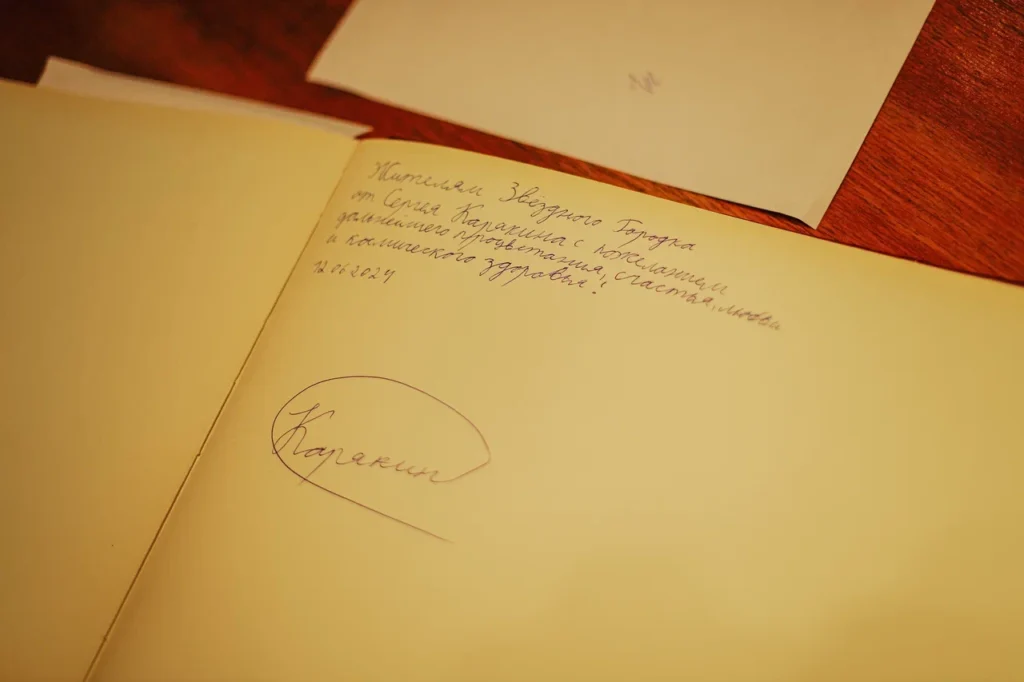 Жителям Звёздного Городка
от Сергея Карякина с пожеланием
дальнейшего процветания, счастья, любви
и космического здоровья!
12.06.2024
Карякин